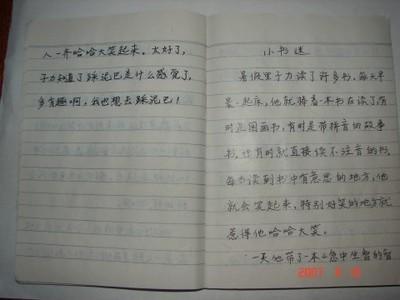 人一齐哈哈大笑起来。太好了,
子力知道了踩泥巴是什么感觉了,
多有趣啊,我也想去踩泥巴!
小书迷
暑假里子力读了许多书,每天早
晨一起床,他就捧着一本书在读了。有
时是图画书,有时是带拼音的故事
书,还有时就直接读不注音的书。
每当读到书中有意思的地方,他
就会笑起来,特别好笑的地方就
惹得他哈哈大笑。
一天他带了一本
2007